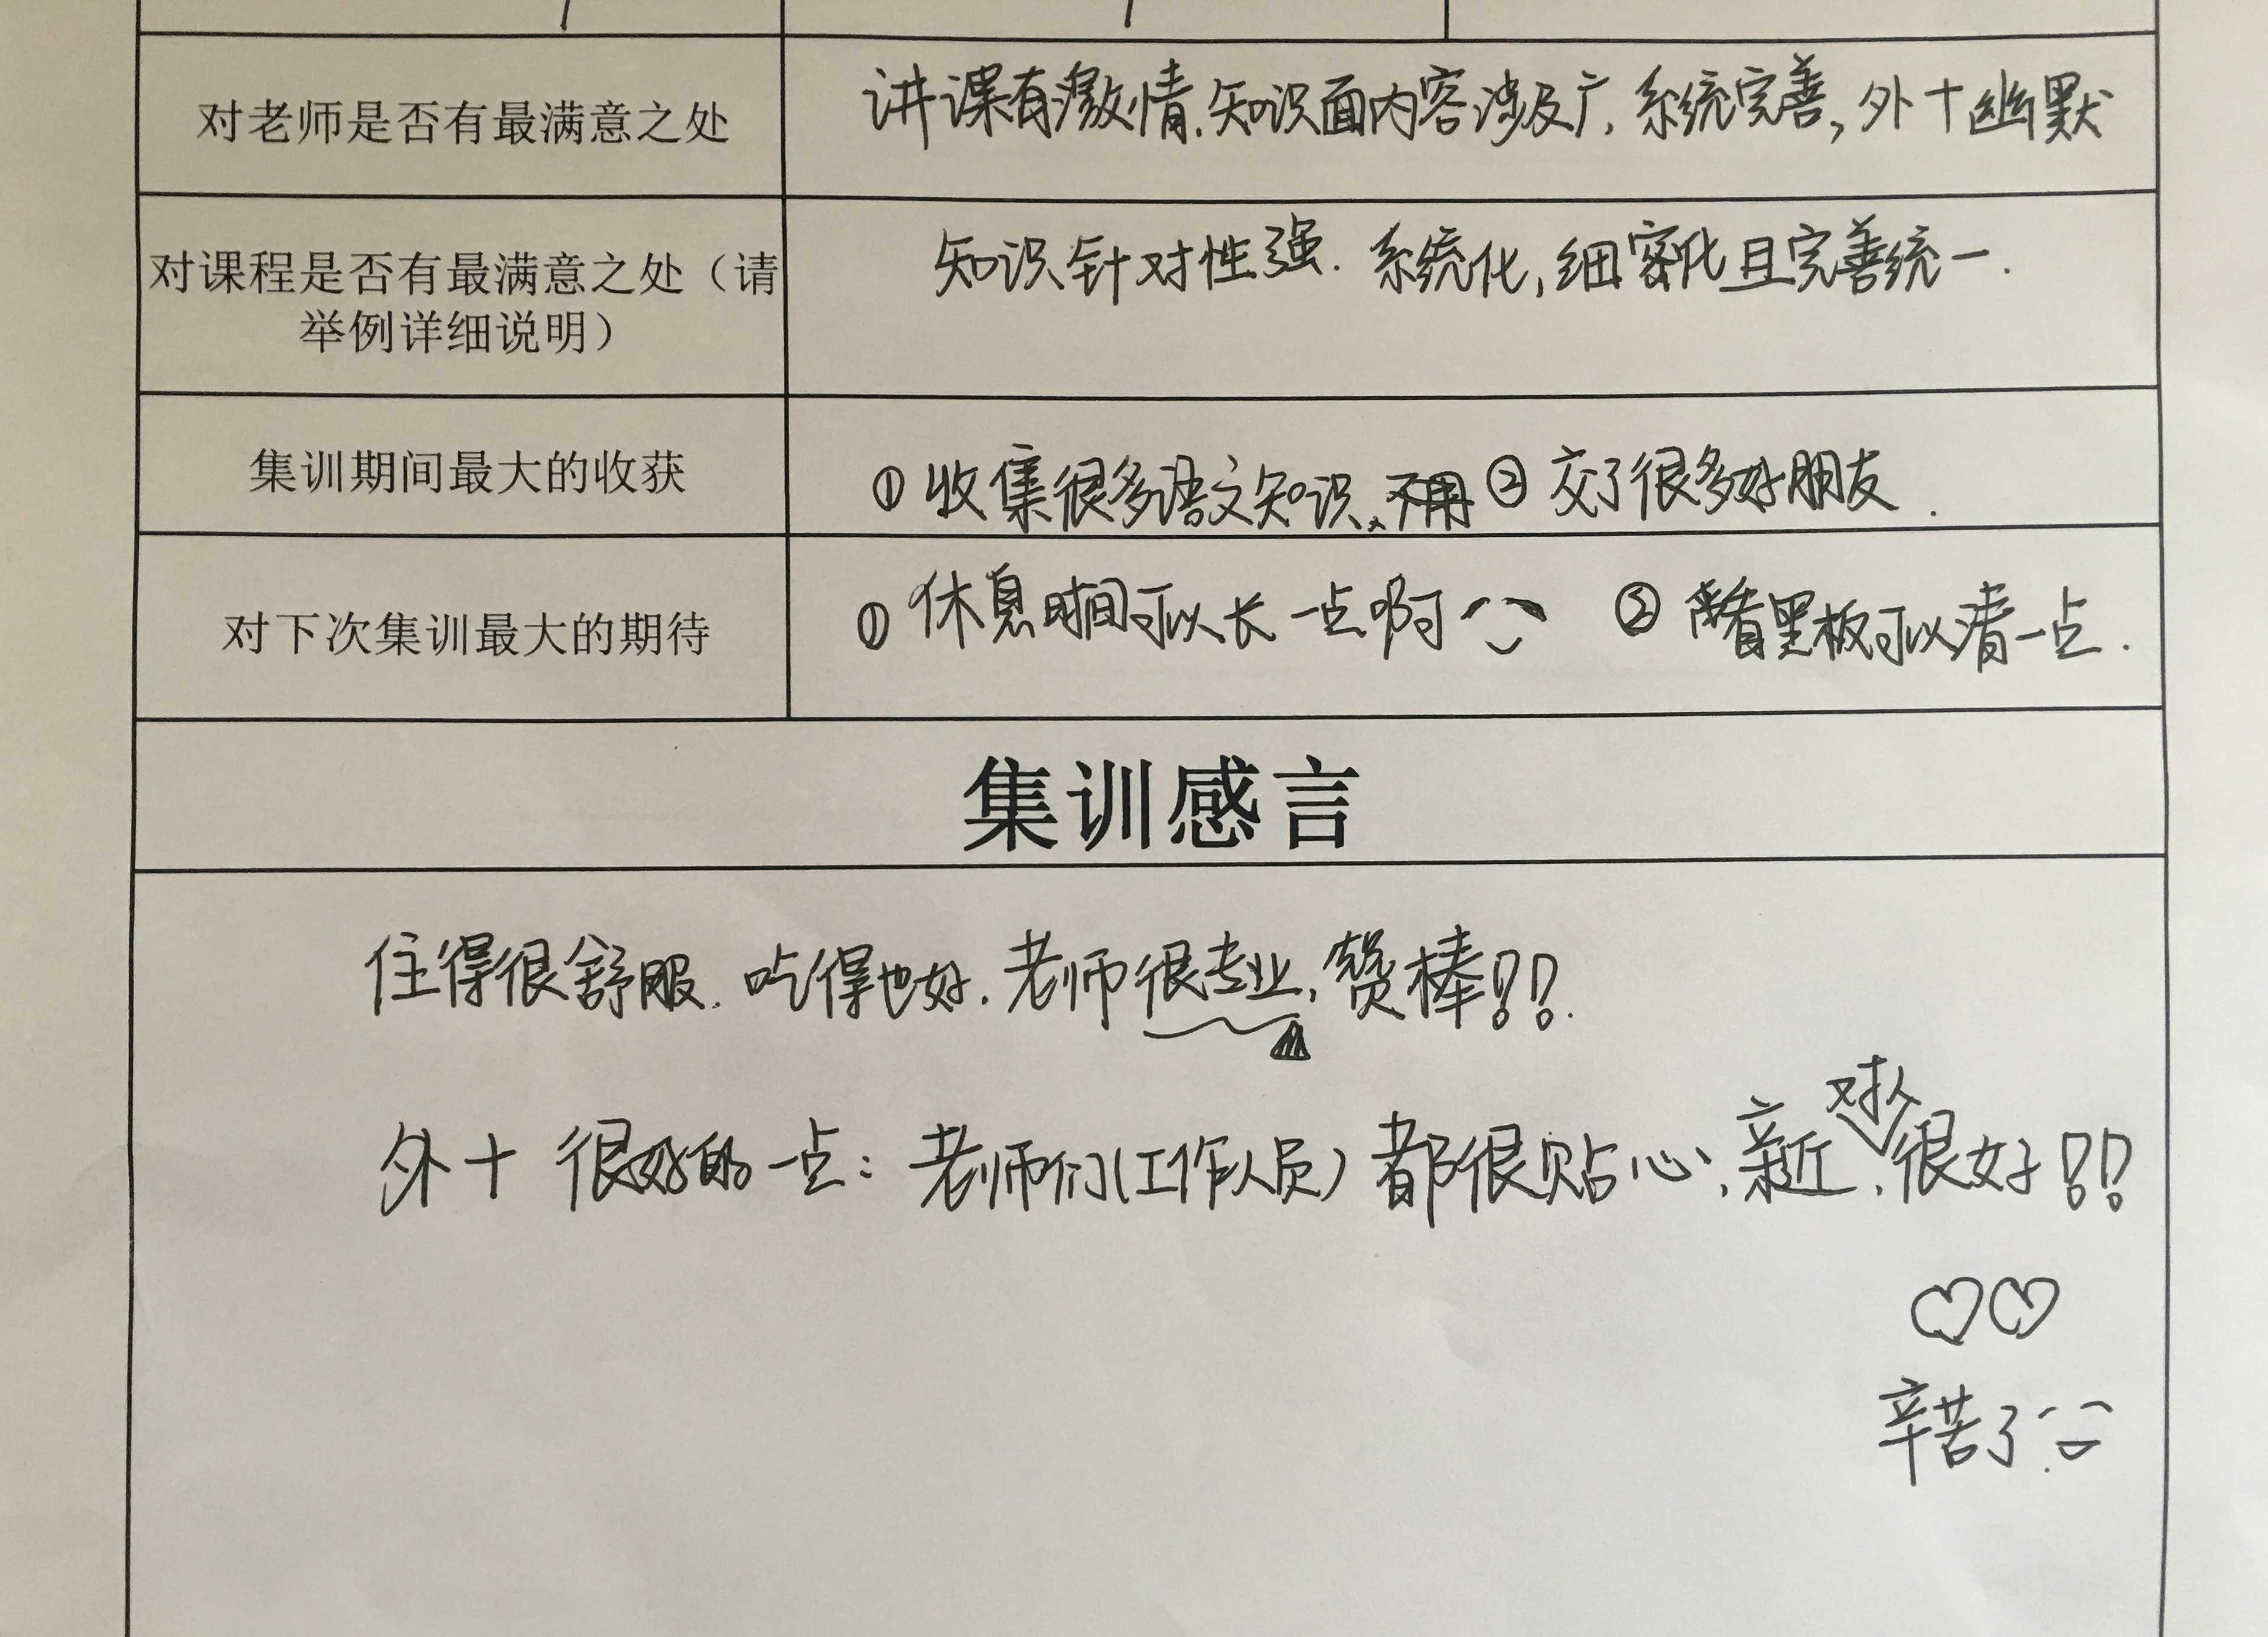 对老师是否有最满意之处
讲课有激情.知识面内容涉及广,系统完善,外十幽默
对课程是否有最满意之处（请
举例详细说明）
知识针对性强.系统化,细密化且完善统一.
集训期间最大的收获
①收集很多语文知识、②交了很多好朋友.
对下次集训最大的期待
①休息时间可以长一点啊 ②看黑板可以清一点.
集训感言
住得很舒服.吃得也好.老师很专业,赞棒!!.
外十 很好的一点:老师们(工作人员)都很贴心,亲近,对人很好!!
辛苦了